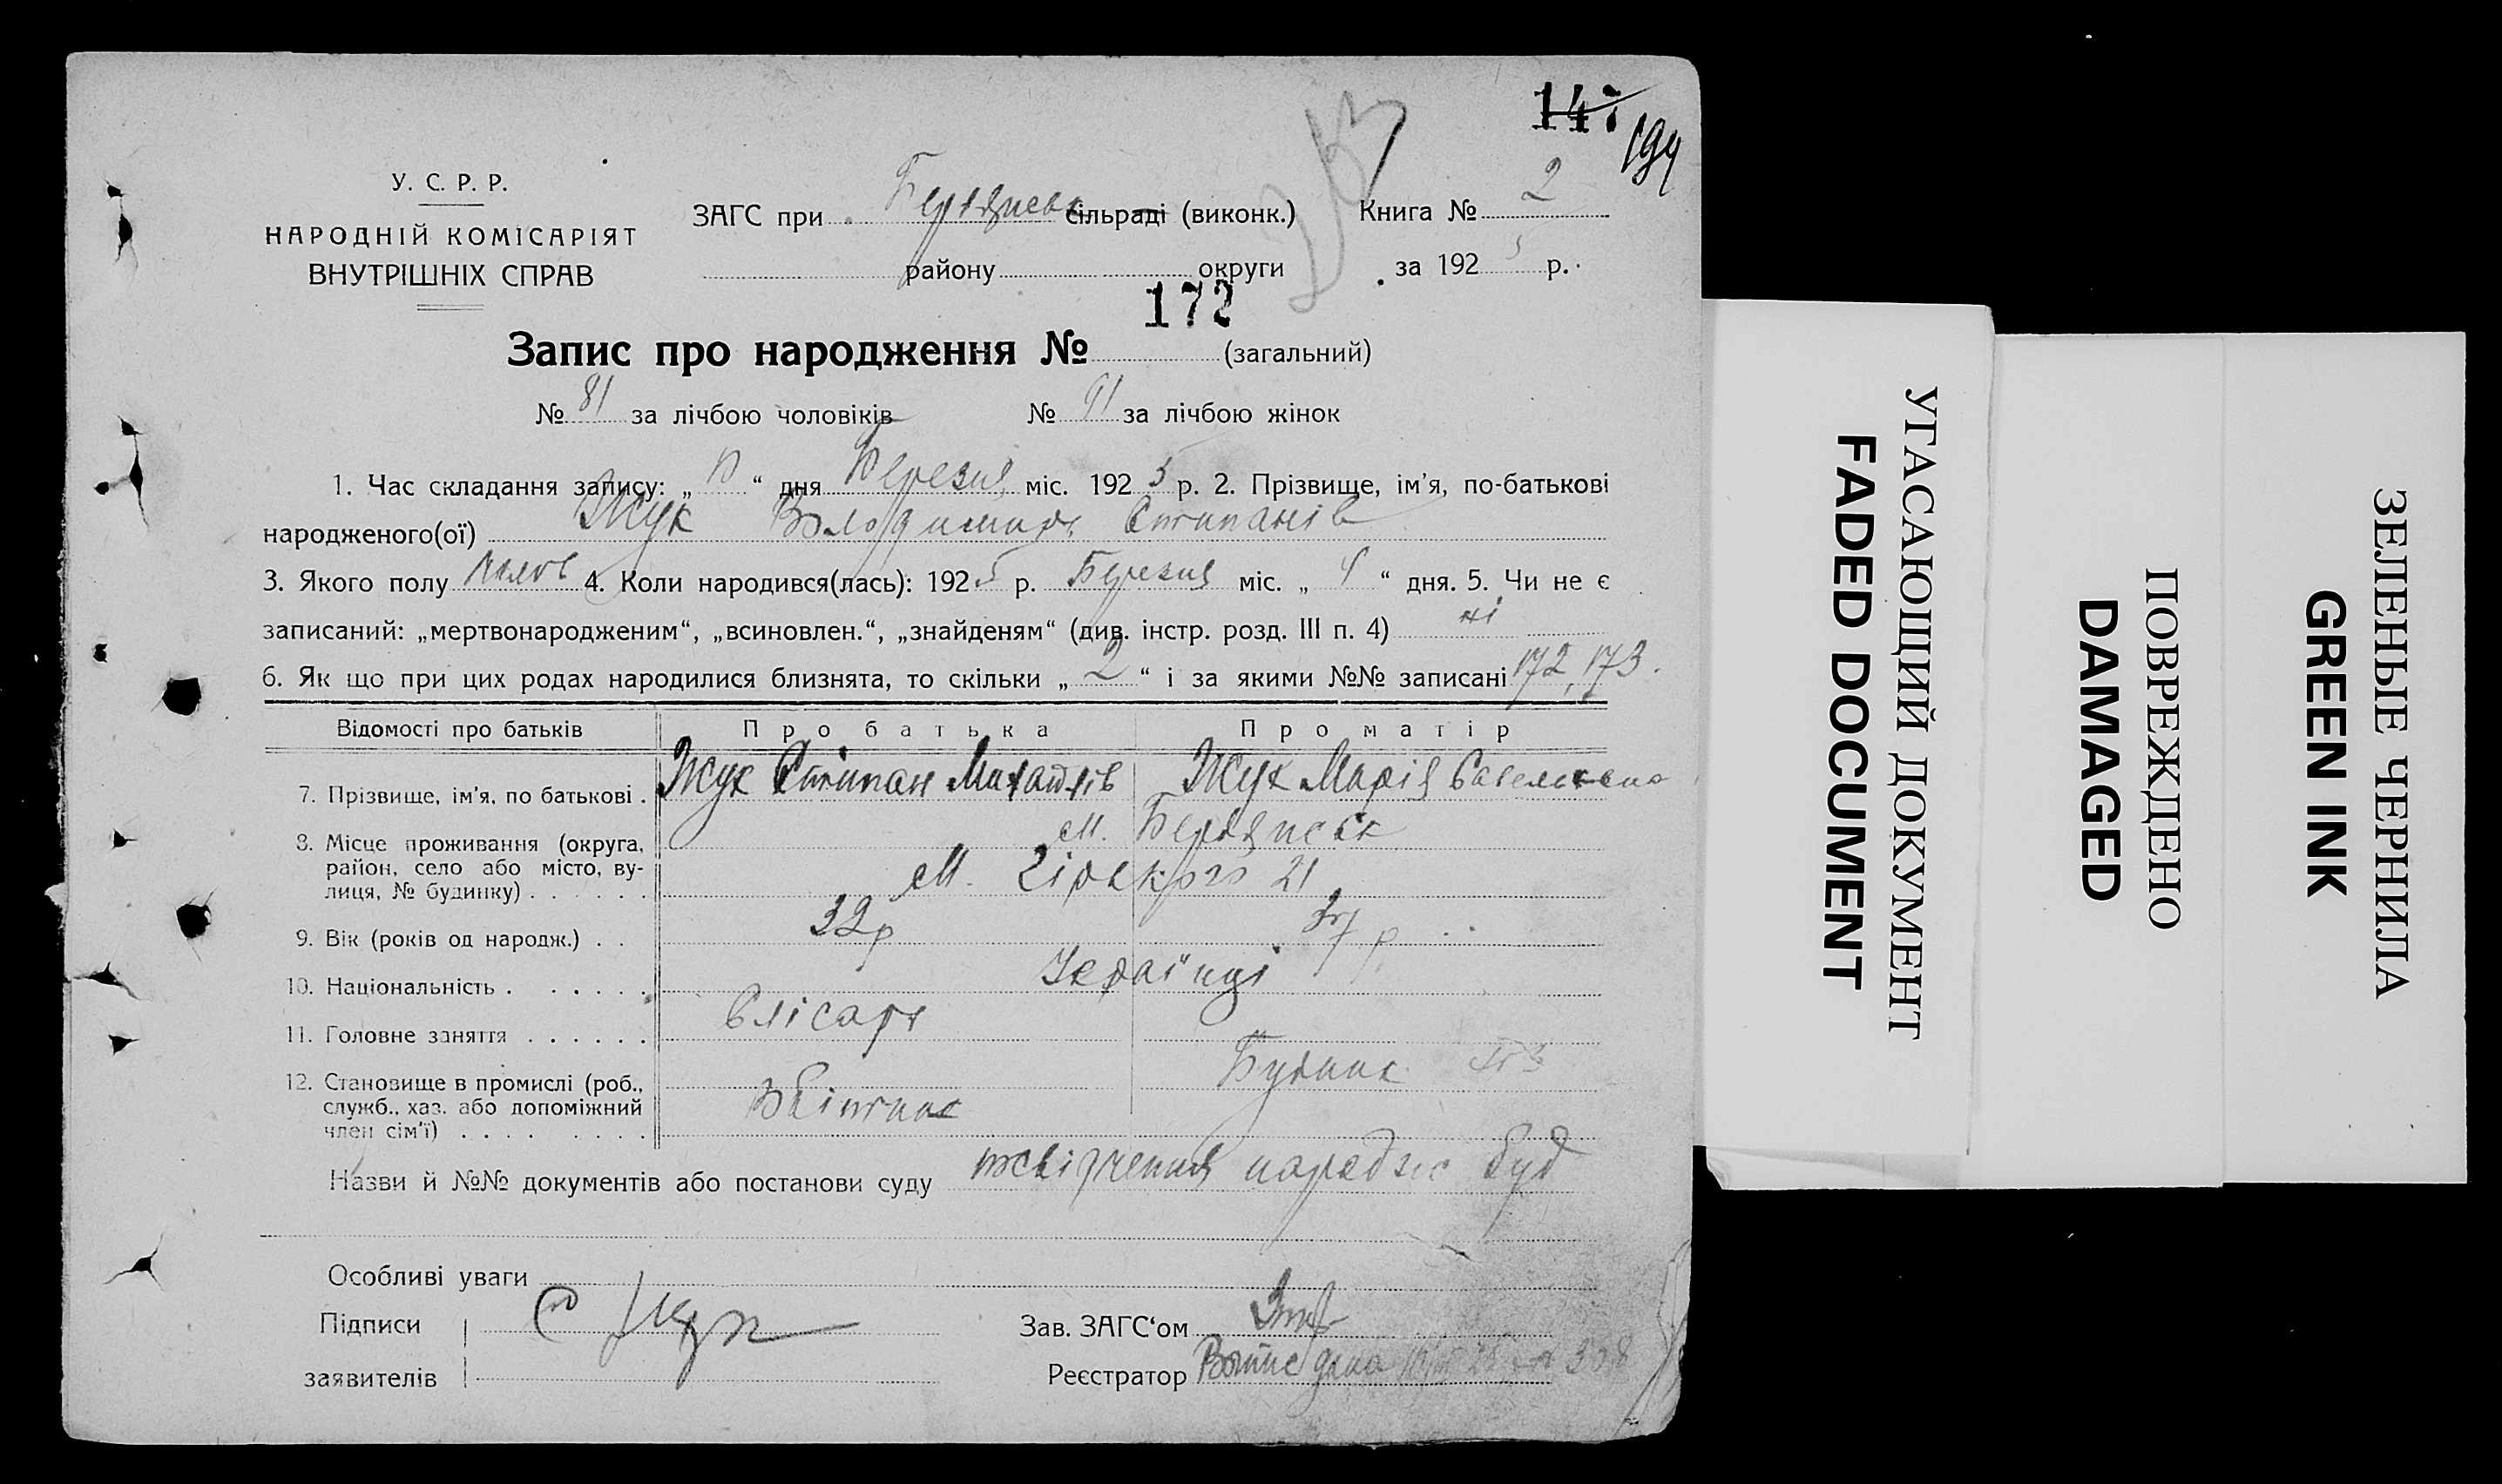 147
194
У. С. Р. Р.
НАРОДНІЙ КОМІСАРІЯТ
ВНУТРІШНІХ СПРАВ
ЗАГС при сільраді (виконк.) Книга № 2
району округи за 192 5 р.
172
Запис про народження № (загальний)
№ 81 за лічбою чоловіків № 91 за лічбою жінок
1. Час складання запису: „ “ дня Березня міс. 192 5 р. 2. Прізвище, ім'я, по-батькові
народженого(ої) Жук Володимир Стипанів
3. Якого полу 4. Коли народився(лась): 192 5 р. Березня міс. „ “ дня. 5. Чи не є
записаний: „мертвонародженим“, „всиновлен.“, „знайденям“ (див. інстр. розд. III п. 4) ні
6. Як що при цих родах народилися близнята, то скільки „ 2 “ і за якими №№ записані 172, 173.
Відомості про батьків Про батька Про матір
7. Прізвище, ім'я, по батькові . Жук Стипан Михайлів Жук Марія
8. Місце проживання (округа, м. Бердянськ
район, село або місто, ву-
лиця, № будинку) . . . . . . М. Гірького 21
9. Вік (років од народж.) . . 32 р 37 р
10. Національність . . . . . . Українці
11. Головне заняття . . . . . . Слісарь
12. Становище в промислі (роб.,
служб., хаз. або допоміжний
член сім'ї) . . . . . . . .
Назви й №№ документів або постанови суду
Особливі уваги
Підписи С Жук Зав. ЗАГС‘ом
заявителів Реєстратор 308
УГАСАЮЩИЙ ДОКУМЕНТ
FADED DOCUMENT
ПОВРЕЖДЕНО
DAMAGED
ЗЕЛЕНЫЕ ЧЕРНИЛА
GREEN INK